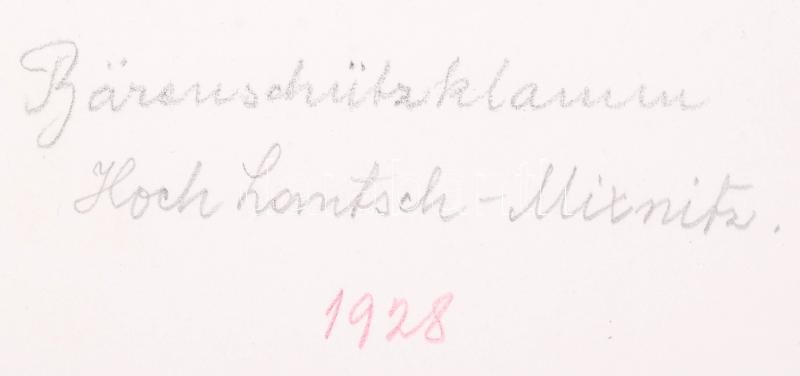 Bärenschützklamm
Hoch Lantsch - Mixnitz.
1928